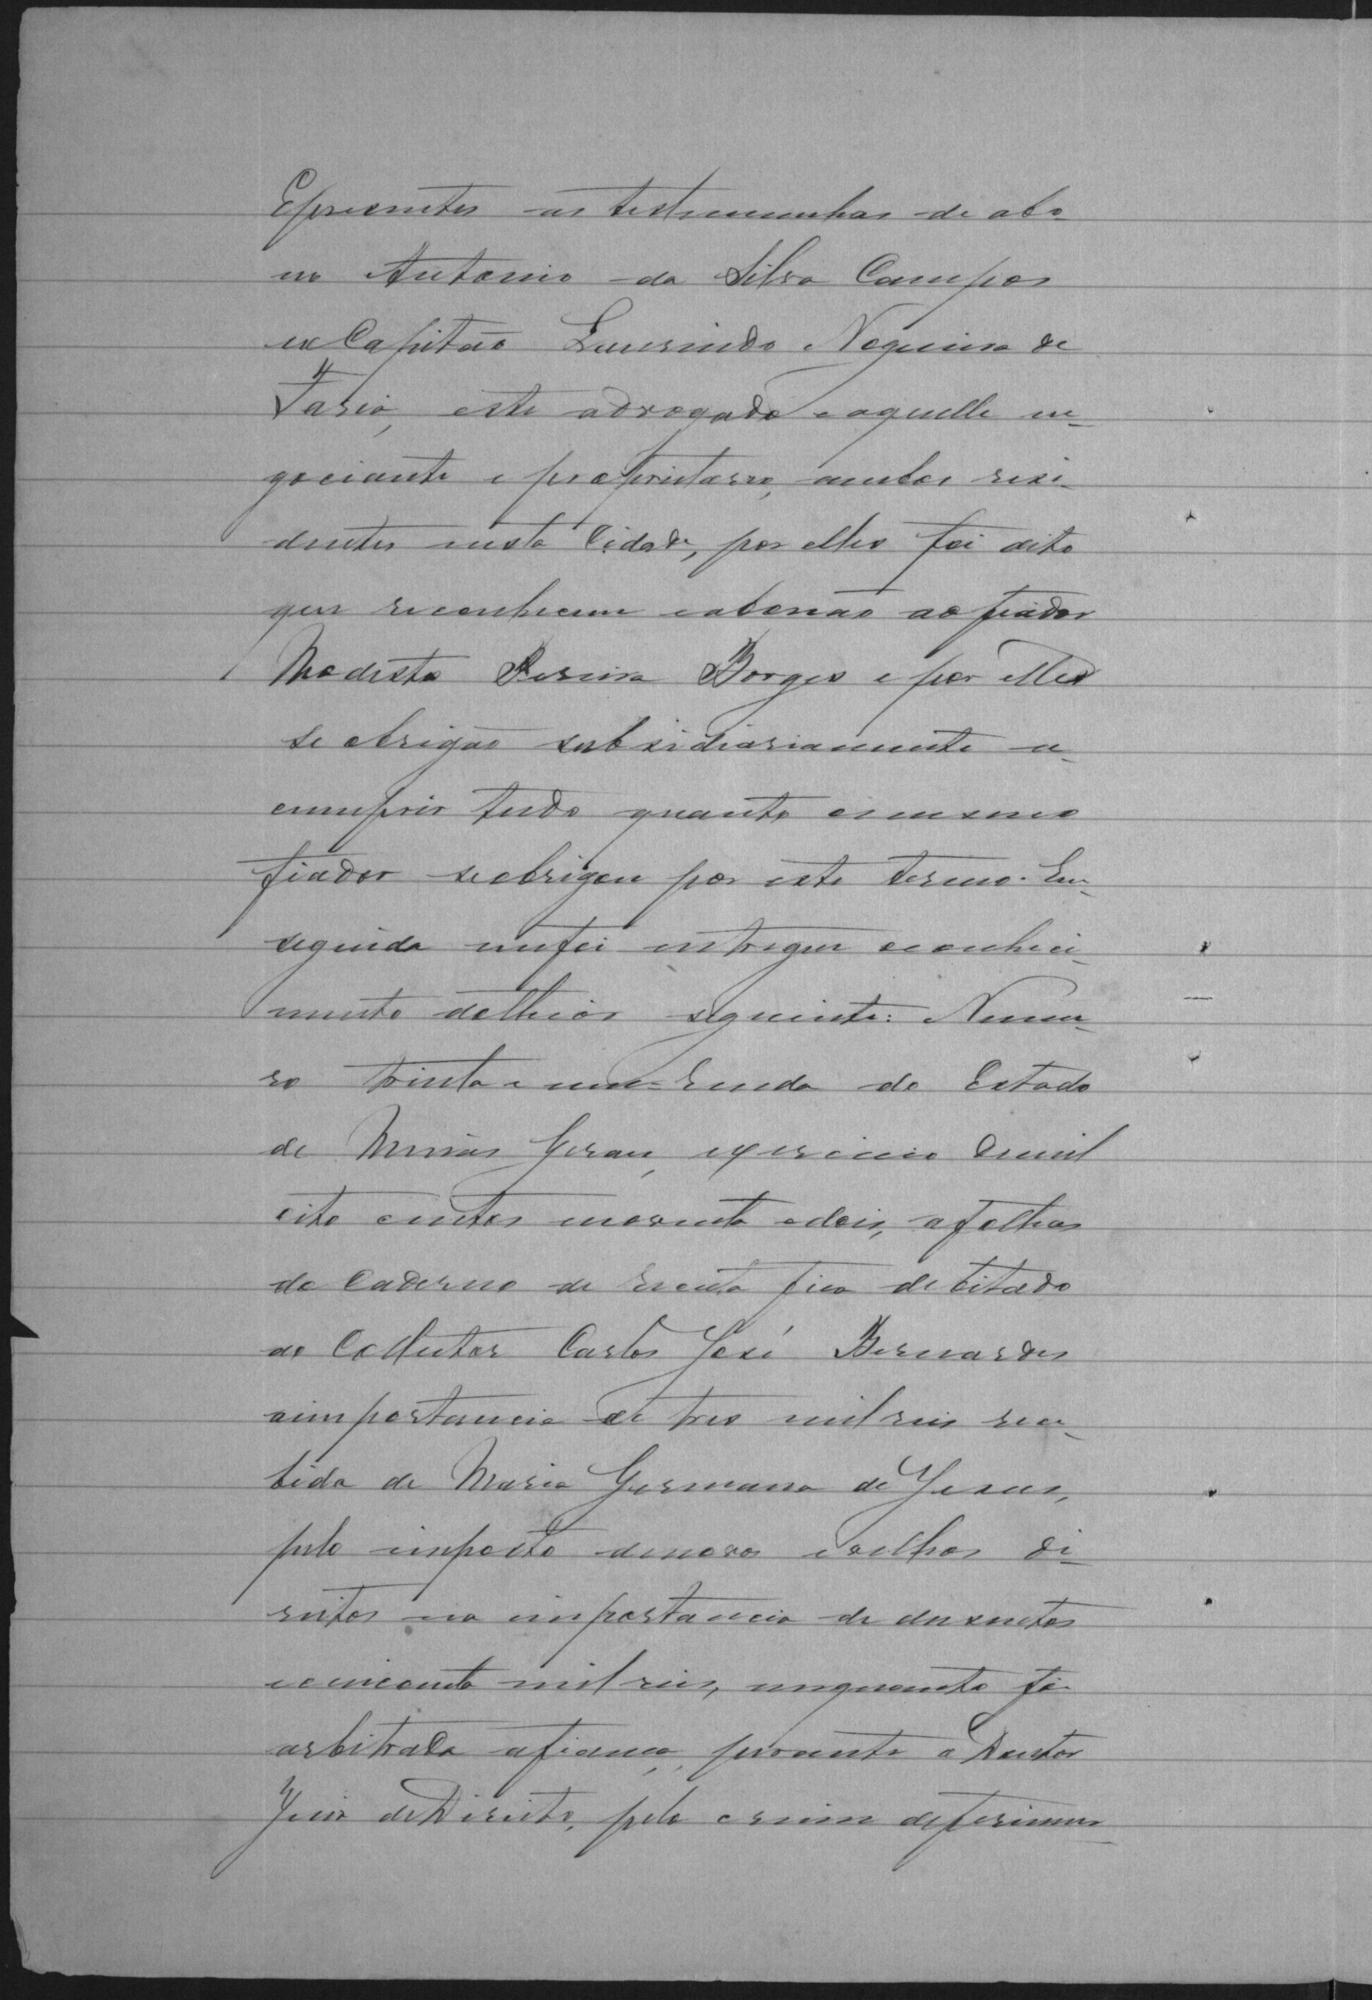 E presentes as testemunhas de abo-
no Antonio da Silva Campos
e o Capitão Laurindo Nogueira de
Faria, este advogado e aquelle ne-
gociante e proprietario, ambos resi-
dentes nesta Cidade, por elles foi dito
que reconhecem e abonão ao fiador
Modesto Pereira Borges e por elles
se obrigão subsidiariamente a
cumprir tudo quanto o mesmo
fiador se obrigou por este termo. Em
seguida me foi entregue o conheci-
mento do theor seguinte: Nume-
ro trinta e um - Renda do Estado
de Minas Geraes, exercicio de mil
oito centos noventa e dois, a folhas
do Caderno de receita fica debitado
ao Collector Carlos José Bernardes
a importancia de tres mil reis rece-
bida de Maria Germana de Jesus,
pelo imposto de novos e velhos di-
reitos na importancia de duzentos
e cincoenta mil reis, em quanto foi
arbitrada a fiança, perante o Doutor
Juiz de Direito, pelo crime de ferimen-